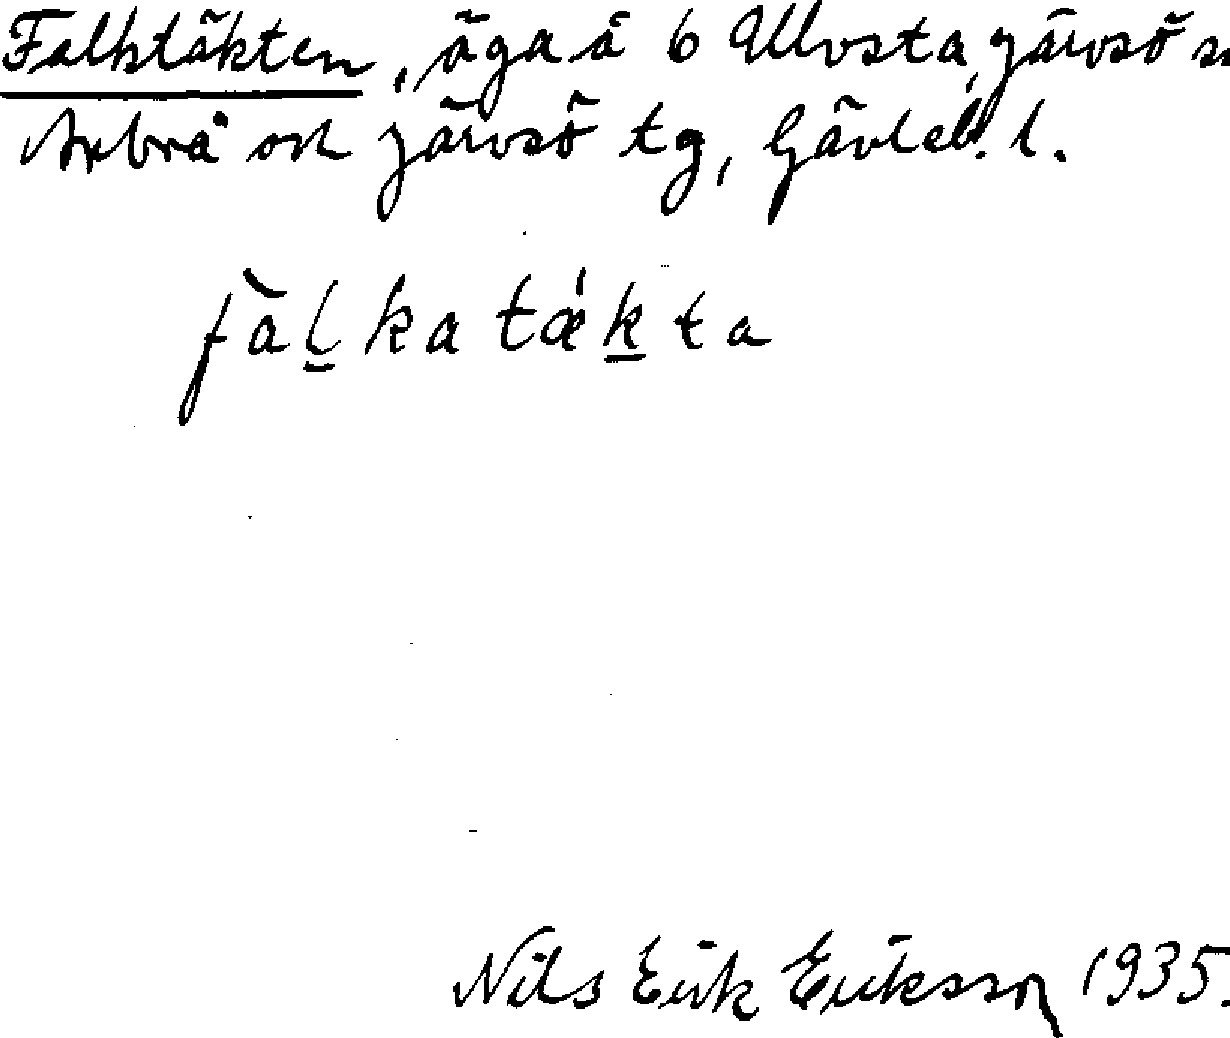 Falktäkten, äga å 6 Ullvsta, Järvsö sn
Arbrå och Järvsö tg, Gävleb. l.
fàl̠katǽk̠ta
Nils Erik Eriksson 1935.